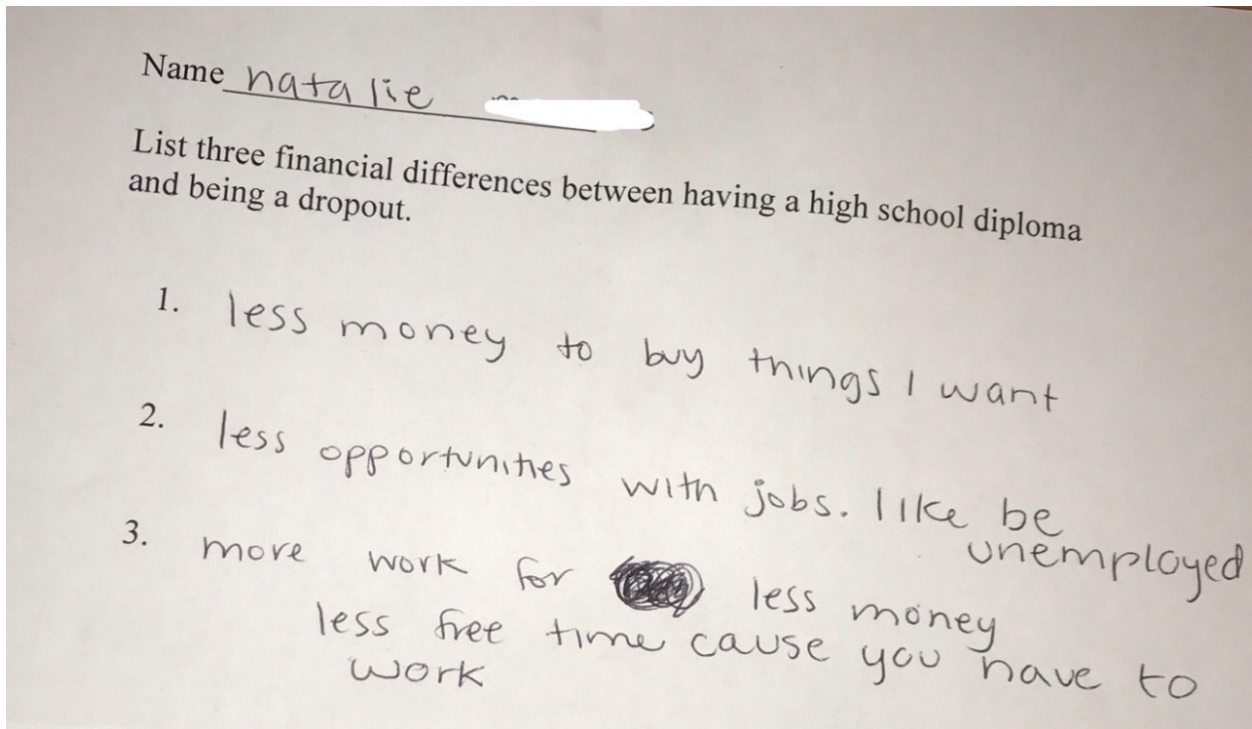 Name natalie
List three financial differences between having a high school diploma
and being a dropout.
1. less money to buy things I want
2. less opportunities with jobs. like be
unemployed
3. more work for less money
less free time cause you have to
work